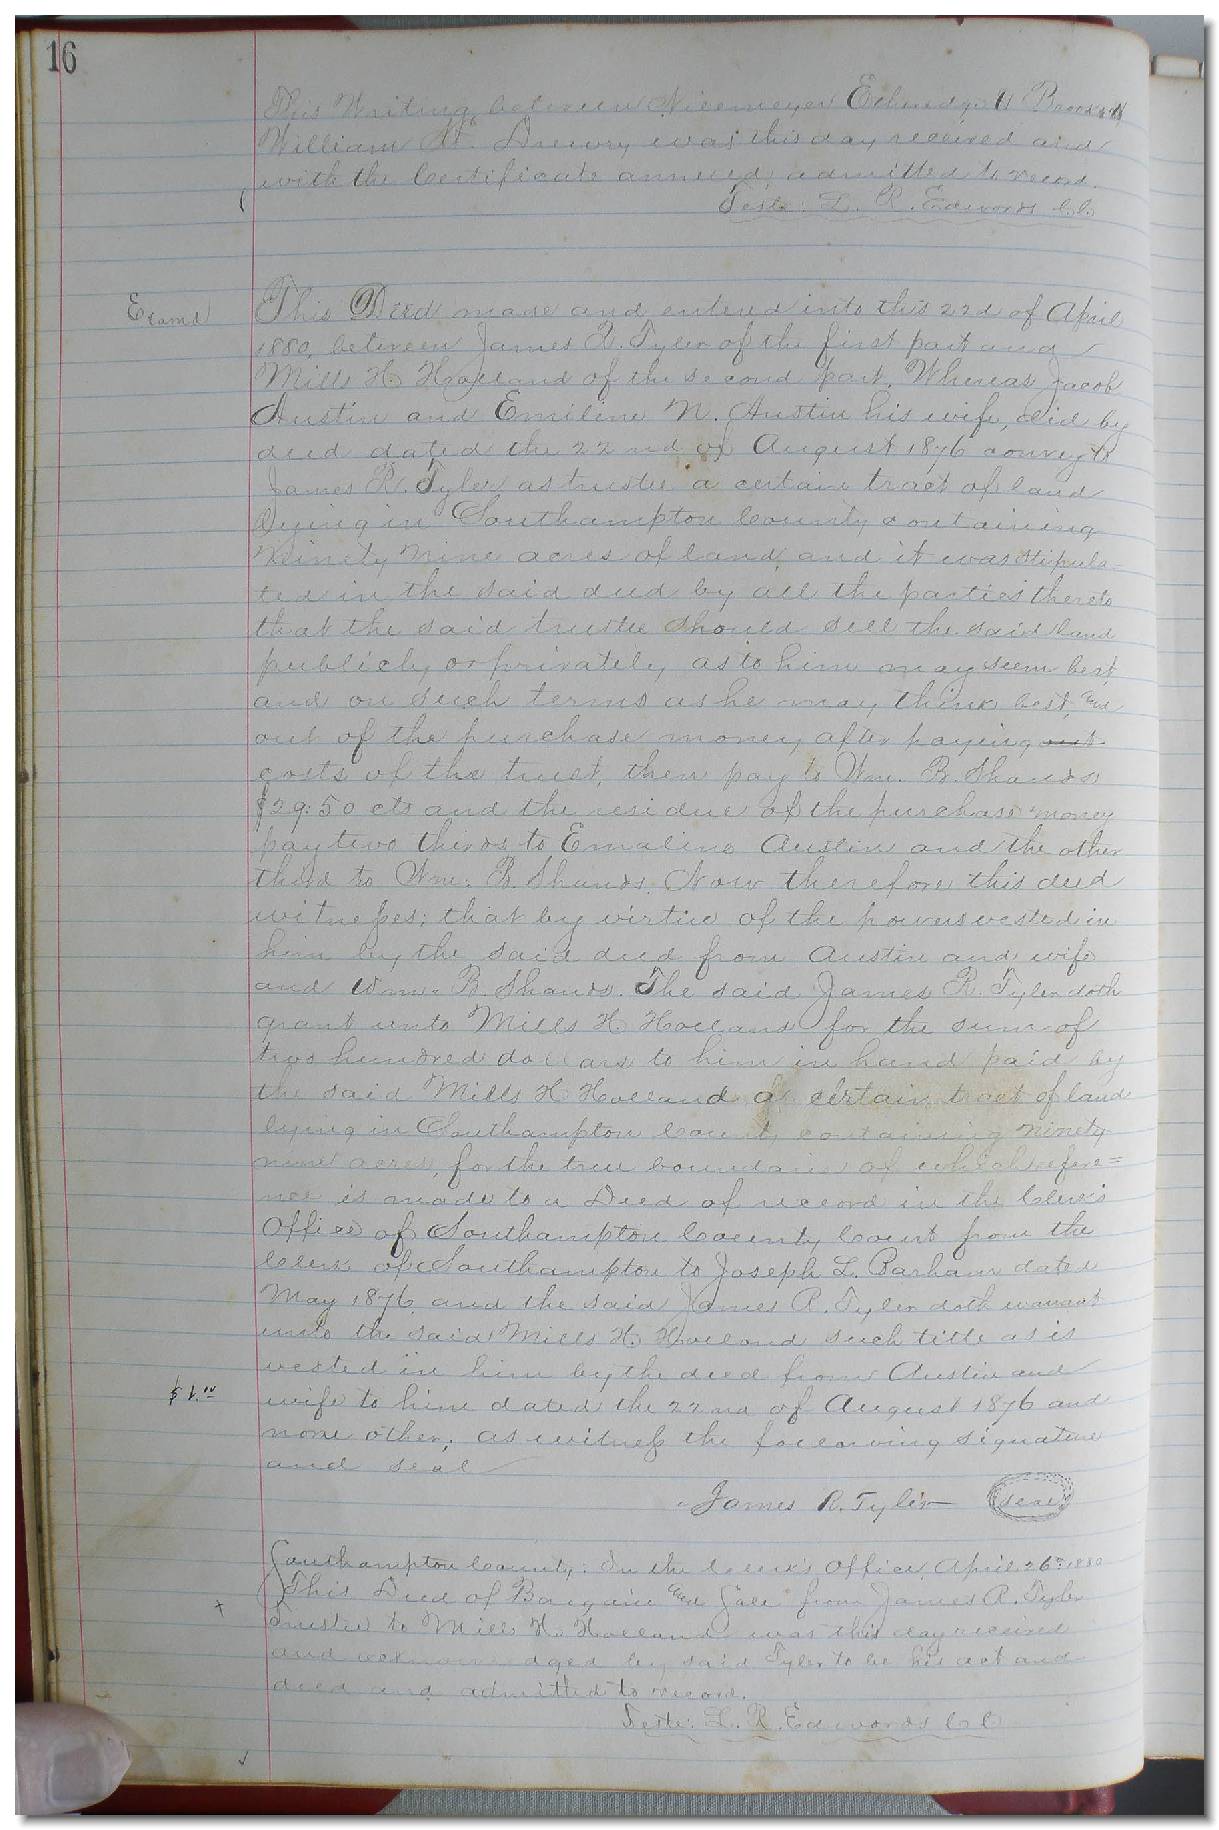 16
This Writing between Niemeyer Ethridge & Brooks &
William H. Drewry was this day received and
with the Certificate annexed admitted to record.
Teste: L. R. Edwards C.C.
Examd
This Deed made and entered into this 22d of April
1880, between James R. Tyler of the first part and
Mills H. Holland of the second part. Whereas Jacob
Austin and Emiline N. Austin his wife, did by
deed dated the 22nd of August 1876 convey to
James R. Tyler as trustee a certain tract of land
lying in Southampton County containing
Ninety Nine acres of land, and it was stipula-
ted in the said deed by all the parties thereto
that the said trustee should sell the said land
publicly or privately as to him may seem best
and on such terms as he may think best, and
out of the purchase money after paying out
costs of the trust, then pay to Wm. B. Shands
$29.50 cts and the residue of the purchase money
pay two thirds to Emaline Austin and the other
third to Wm. B. Shands. Now therefore this deed
witnesses: that by virtue of the powers vested in
him by the said deed from Austin and wife
and Wm. B. Shands. The said James R. Tyler doth
grant unto Mills H. Holland for the sum of
two hundred dollars to him in hand paid by
the said Mills H. Holland a certain tract of land
lying in Southampton County containing ninety
nine acres, for the true boundaries of which refere=
nce is made to a Deed of record in the Clerk's
Office of Southampton County Court from the
Clerk of Southampton to Joseph L. Barham dated
May 1876 and the said James R. Tyler doth warrant
unto the said Mills H. Holland such title as is
vested in him by the deed from Austin and
$1.00
wife to him dated the 22nd of August 1876 and
none other, as witness the following signature
and seal
James R. Tyler seal
Southampton County: In the Clerk's Office April 26th 1880
This Deed of Bargain and Sale from James R. Tyler
Trustee to Mills H. Holland was this day received
and acknowledged by said Tyler to be his act and
deed and admitted to record.
Teste: L. R. Edwards C C